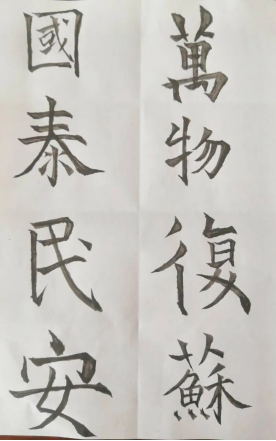 萬物復蘇
國泰民安